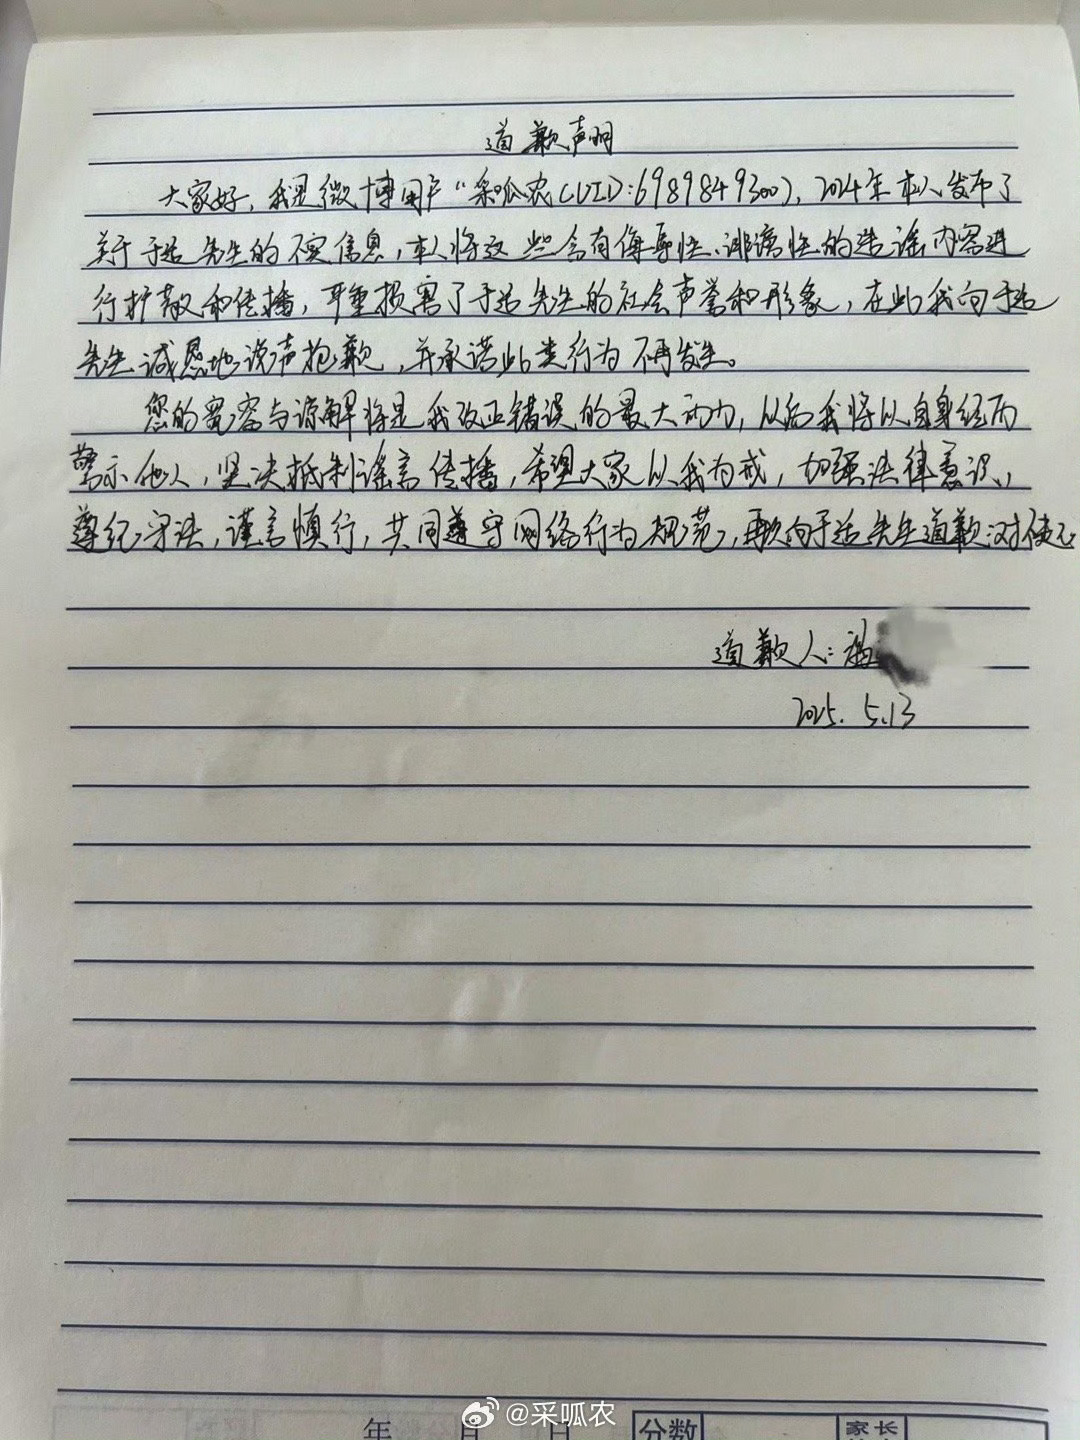 道歉声明
大家好，我是微博用户"采呱农(UID:6989849300)，2024年本人发布了
关于于适先生的不实信息，本人将这些含有侮辱性、诽谤性的造谣内容进
行扩散和传播，严重损害了于适先生的社会声誉和形象，在此我向于适
先生诚恳地说声抱歉，并承诺此类行为不再发生。
您的宽容与谅解将是我改正错误的最大动力，以后我将以自身经历
警示他人，坚决抵制谣言传播，希望大家以我为戒，加强法律意识，
遵纪守法，谨言慎行，共同遵守网络行为规范，再次向于适先生道歉：对不起
道歉人：
2025.5.13
年 月 日 分数 家长
@采呱农